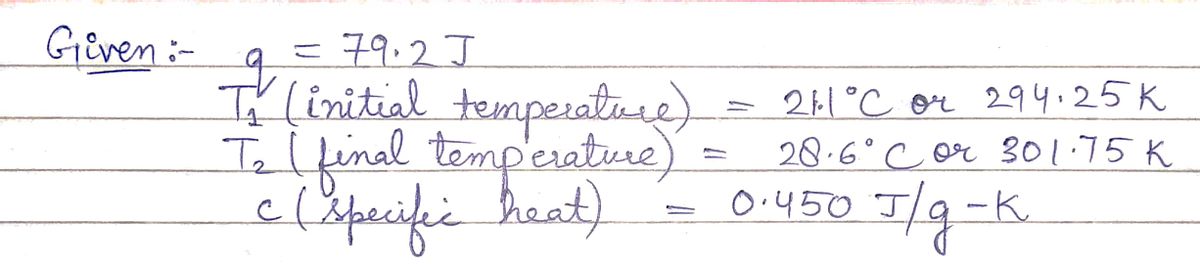 Given :- q = 79.2 J
T₁ (initial temperature) = 21.1°C or 294.25 K
T₂ (final temperature) = 28.6°C or 301.75 K
c (specific heat) = 0.450 J/g-K